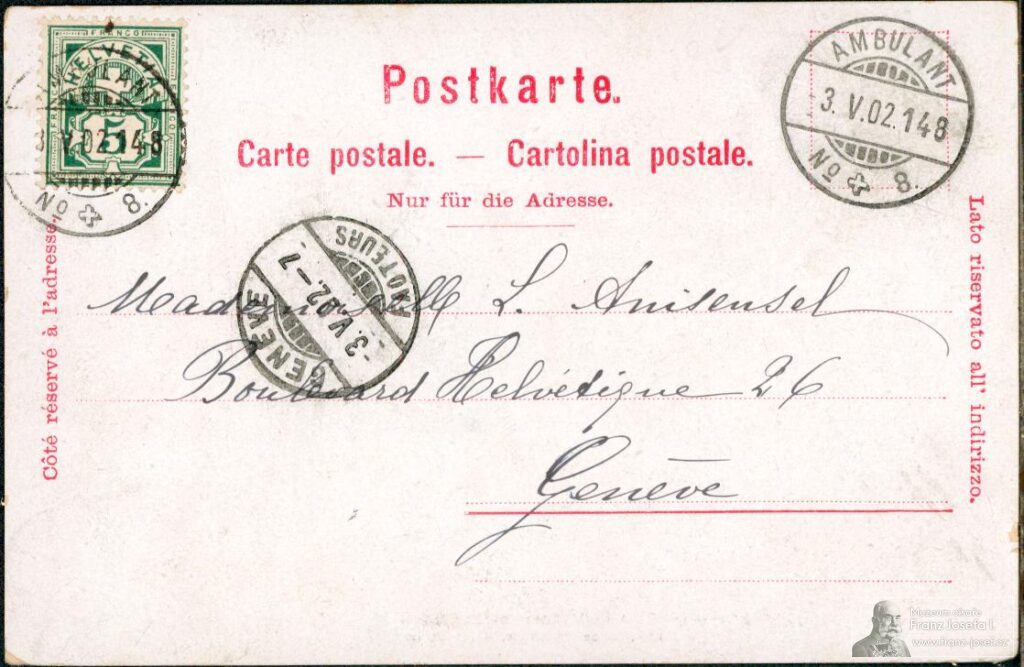 FRANCO
HELVETIA
FRANCO
FRANCO
5
3. V.02.148
No 8.
Postkarte.
Carte postale. — Cartolina postale.
Nur für die Adresse.
AMBULANT
3. V.02.148
No 8.
Côté réservé à l'adresse.
Lato riservato all' indirizzo.
GENÈVE
-3.V.02.-7.
Mademoiselle L.
Boulevard Helvétique 26
Genève
Franz Josefa I.
www.franz-josef.cz